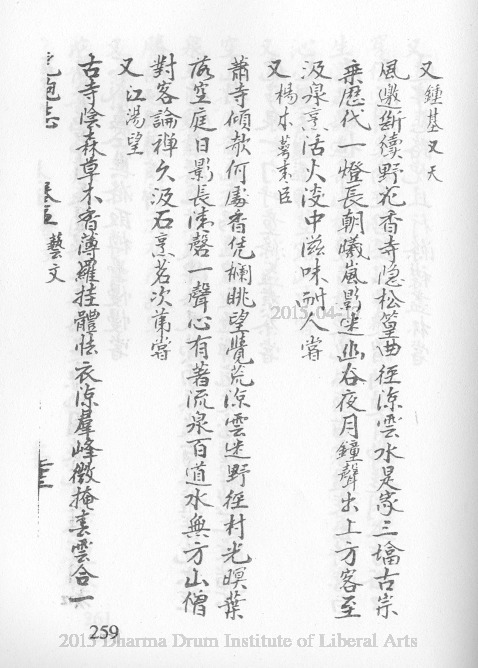 又 鍾基 又天
風邊斷續野花香寺隐松篁曲徑涼雲水是家三墖古宗
乘歷代一燈長朝曦嵐影迷幽谷夜月鐘聲出上方客至
汲泉烹活火淡中滋味耐人嘗
又 楊本 臣
蕭寺傾欹何處香凭欄眺望覺荒涼雲迷野徑村光暝葉
落空庭日影長清磬一聲心有著流泉百道水無方山僧
對客論禪久汲石烹茗次苐嘗
又 江湯望
古寺陰森草木香薄羅挂體怯衣涼羣峰微掩春雲合一
志 藝文
259
2015-04-
2015 Dharma Drum Institute of Liberal Arts